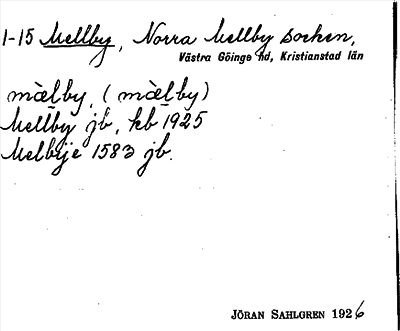 1-15 Mellby, Norra Mellby socken,
Västra Göinge hd, Kristianstad län
mæ̀lby, (mæ̀lby)
Mellby jb, kb 1925
Melbye 1583 jb.
JÖRAN SAHLGREN 1926